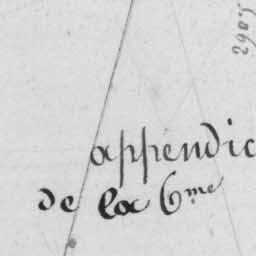 appendic
de la 6me